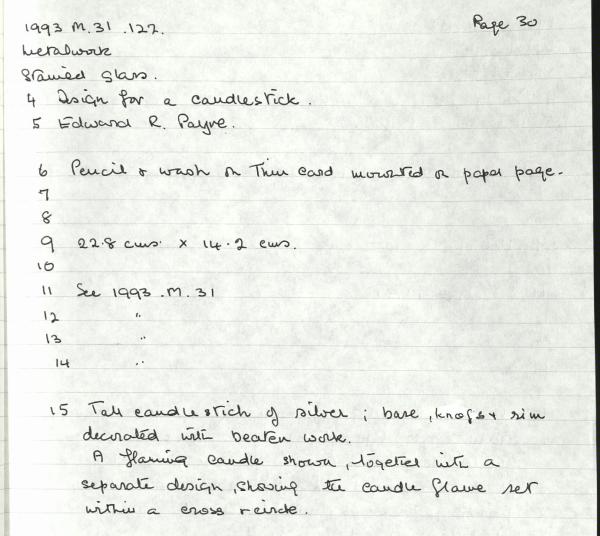 1993 M.31 .122. Page 30
Metalwork
Stained Glass.
4 Design for a candlestick.
5 Edward R. Payne.
6 Pencil & wash on Thin card mounted on paper page.
7
8
9 22.8 cms. x 14.2 cms.
10
11 See 1993.M.31
12 "
13 "
14 "
15 Tall candlestick of silver ; base, knops & rim
decorated with beaten work.
A flaming candle shown, together with a
separate design, showing the candle flame set
within a cross & circle.